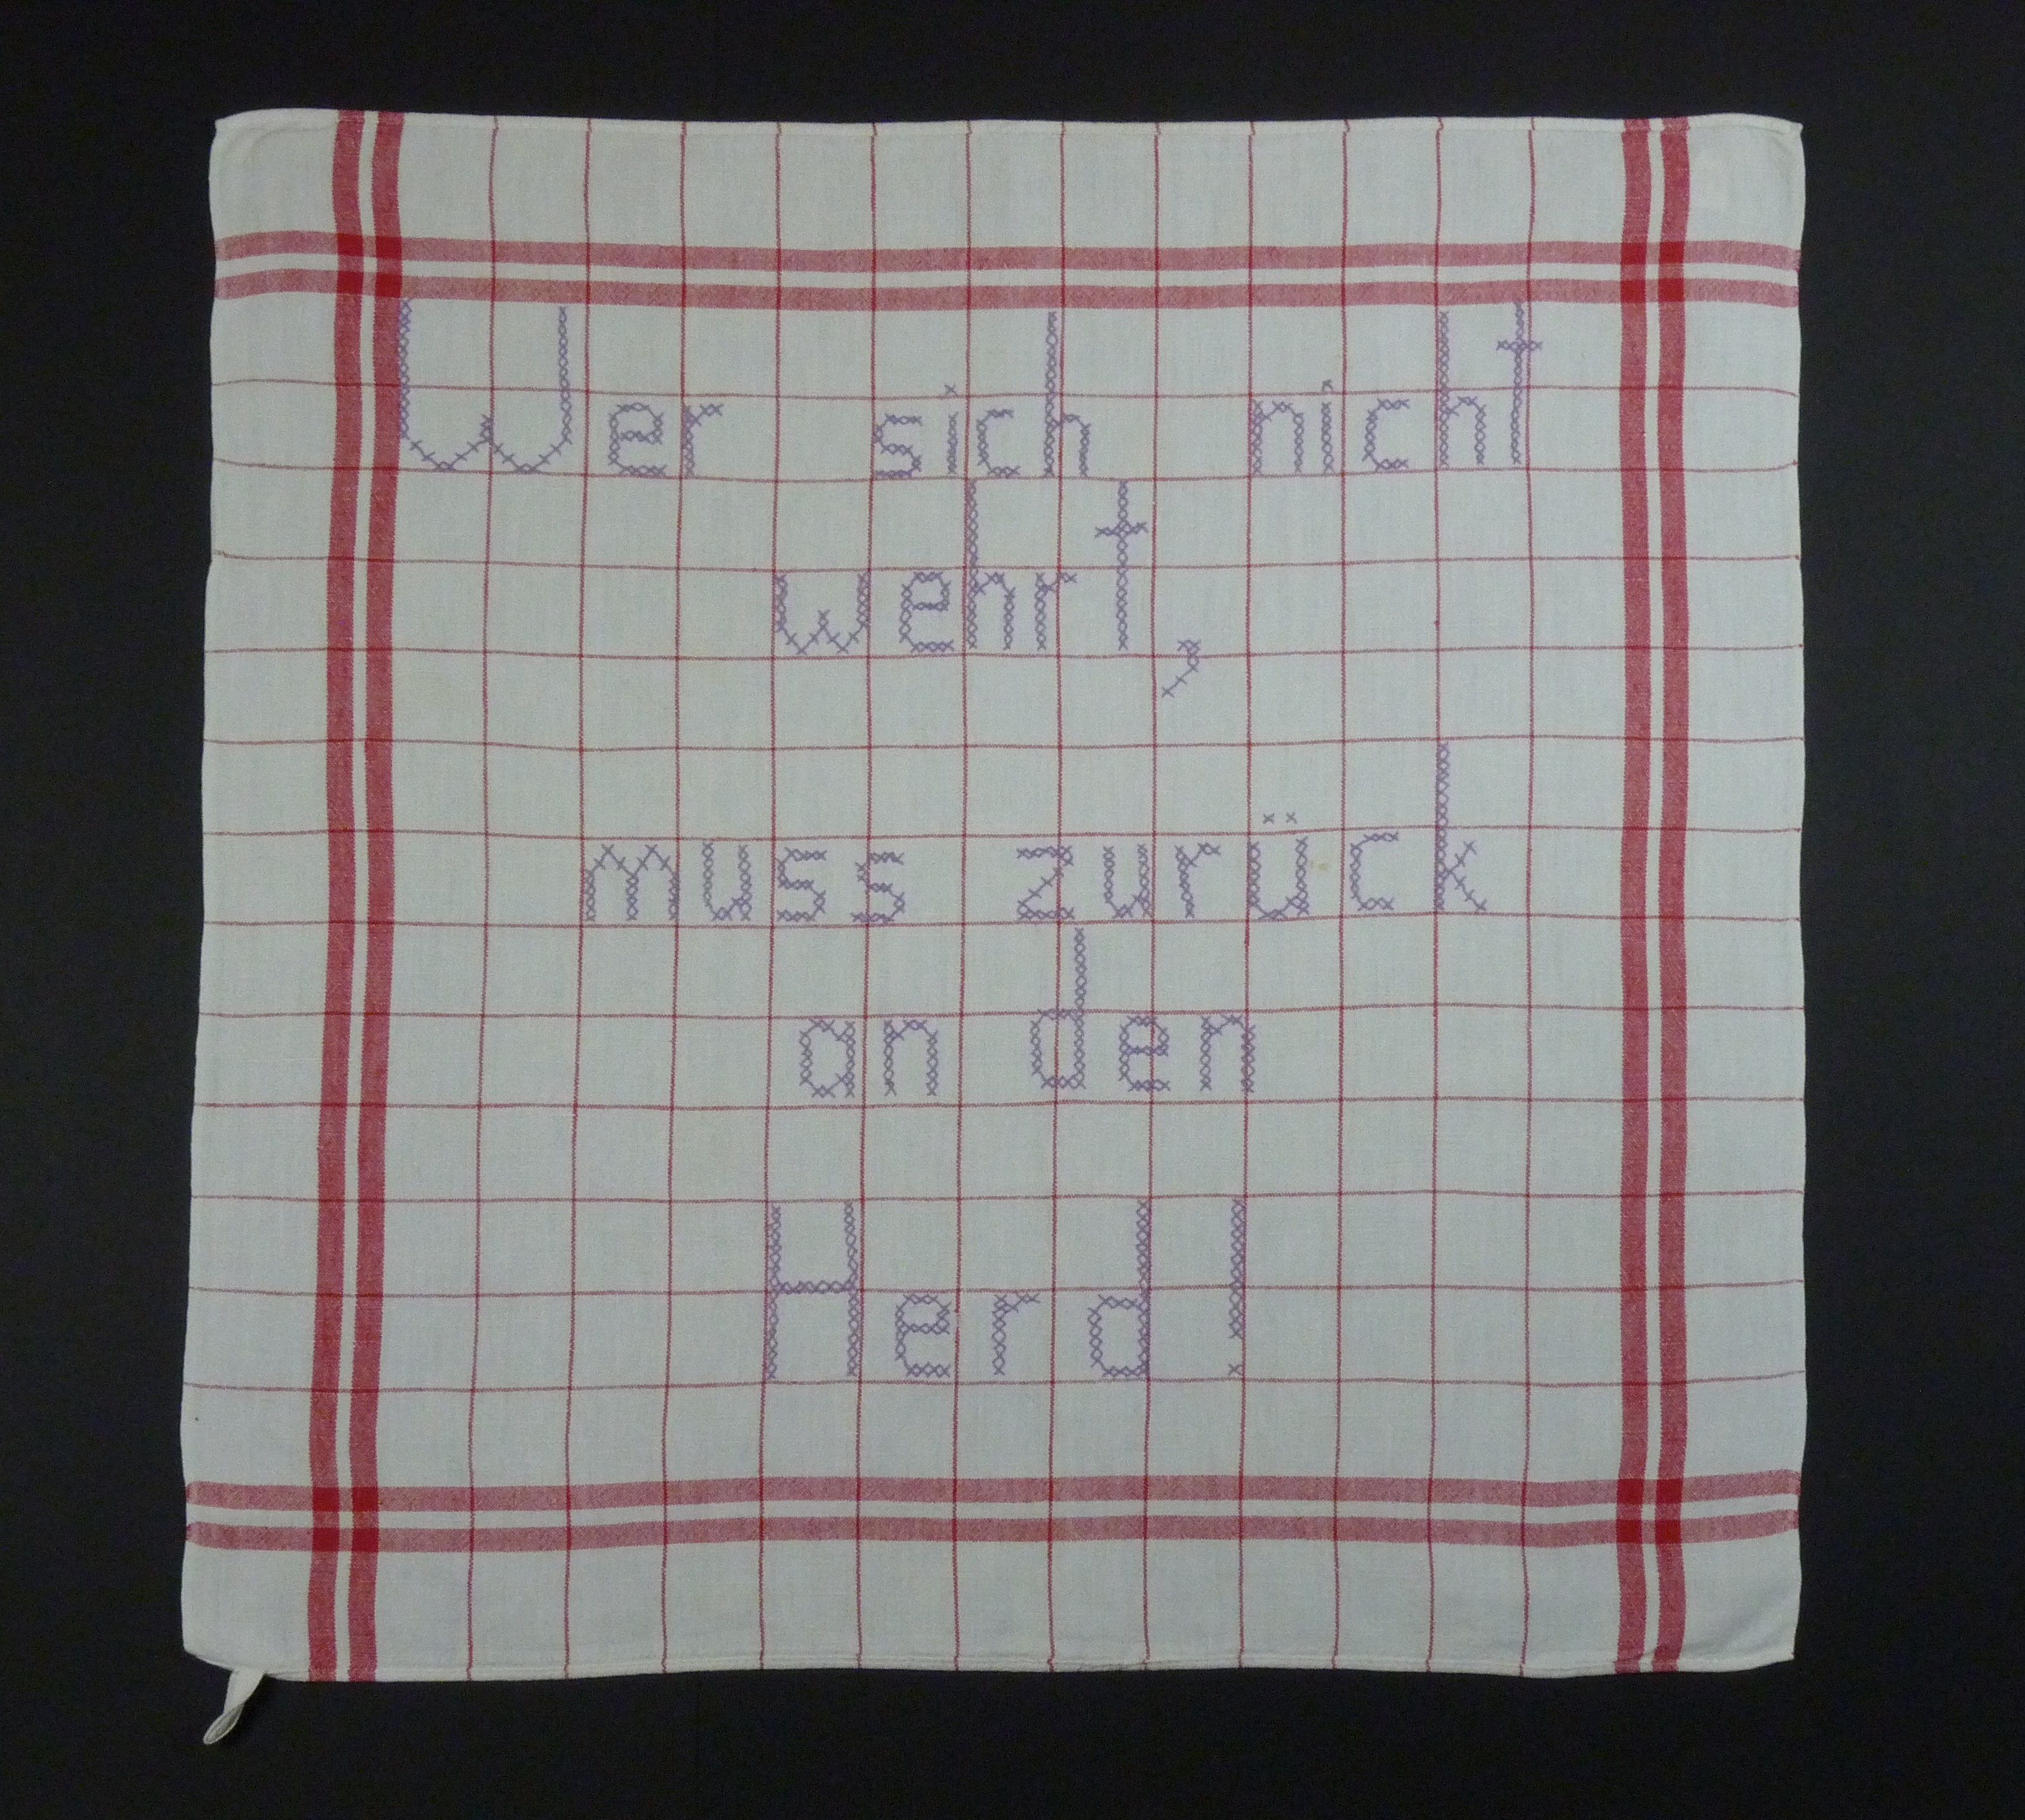 Wer sich nicht
wehrt,
muss zurück
an den
Herd!